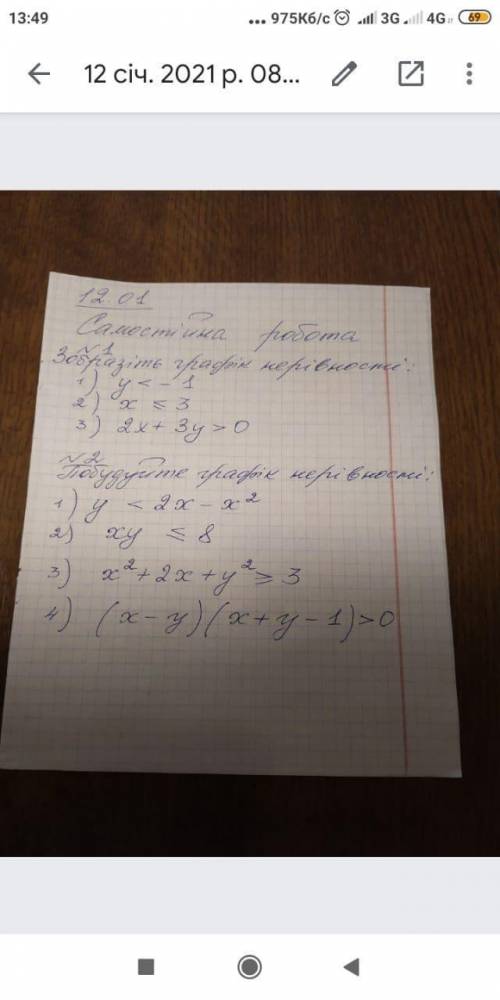 13:49 ... 975Кб/с 3G 4G 69
12 січ. 2021 р. 08...
12.01
Самостійна робота
№1
Зобразіть графік нерівності:
1) y < -1
2) x ≤ 3
3) 2x + 3y > 0
№2
Побудуйте графік нерівності:
1) y < 2x - x²
2) xy ≤ 8
3) x² + 2x + y² ≥ 3
4) (x - y)(x + y - 1) > 0